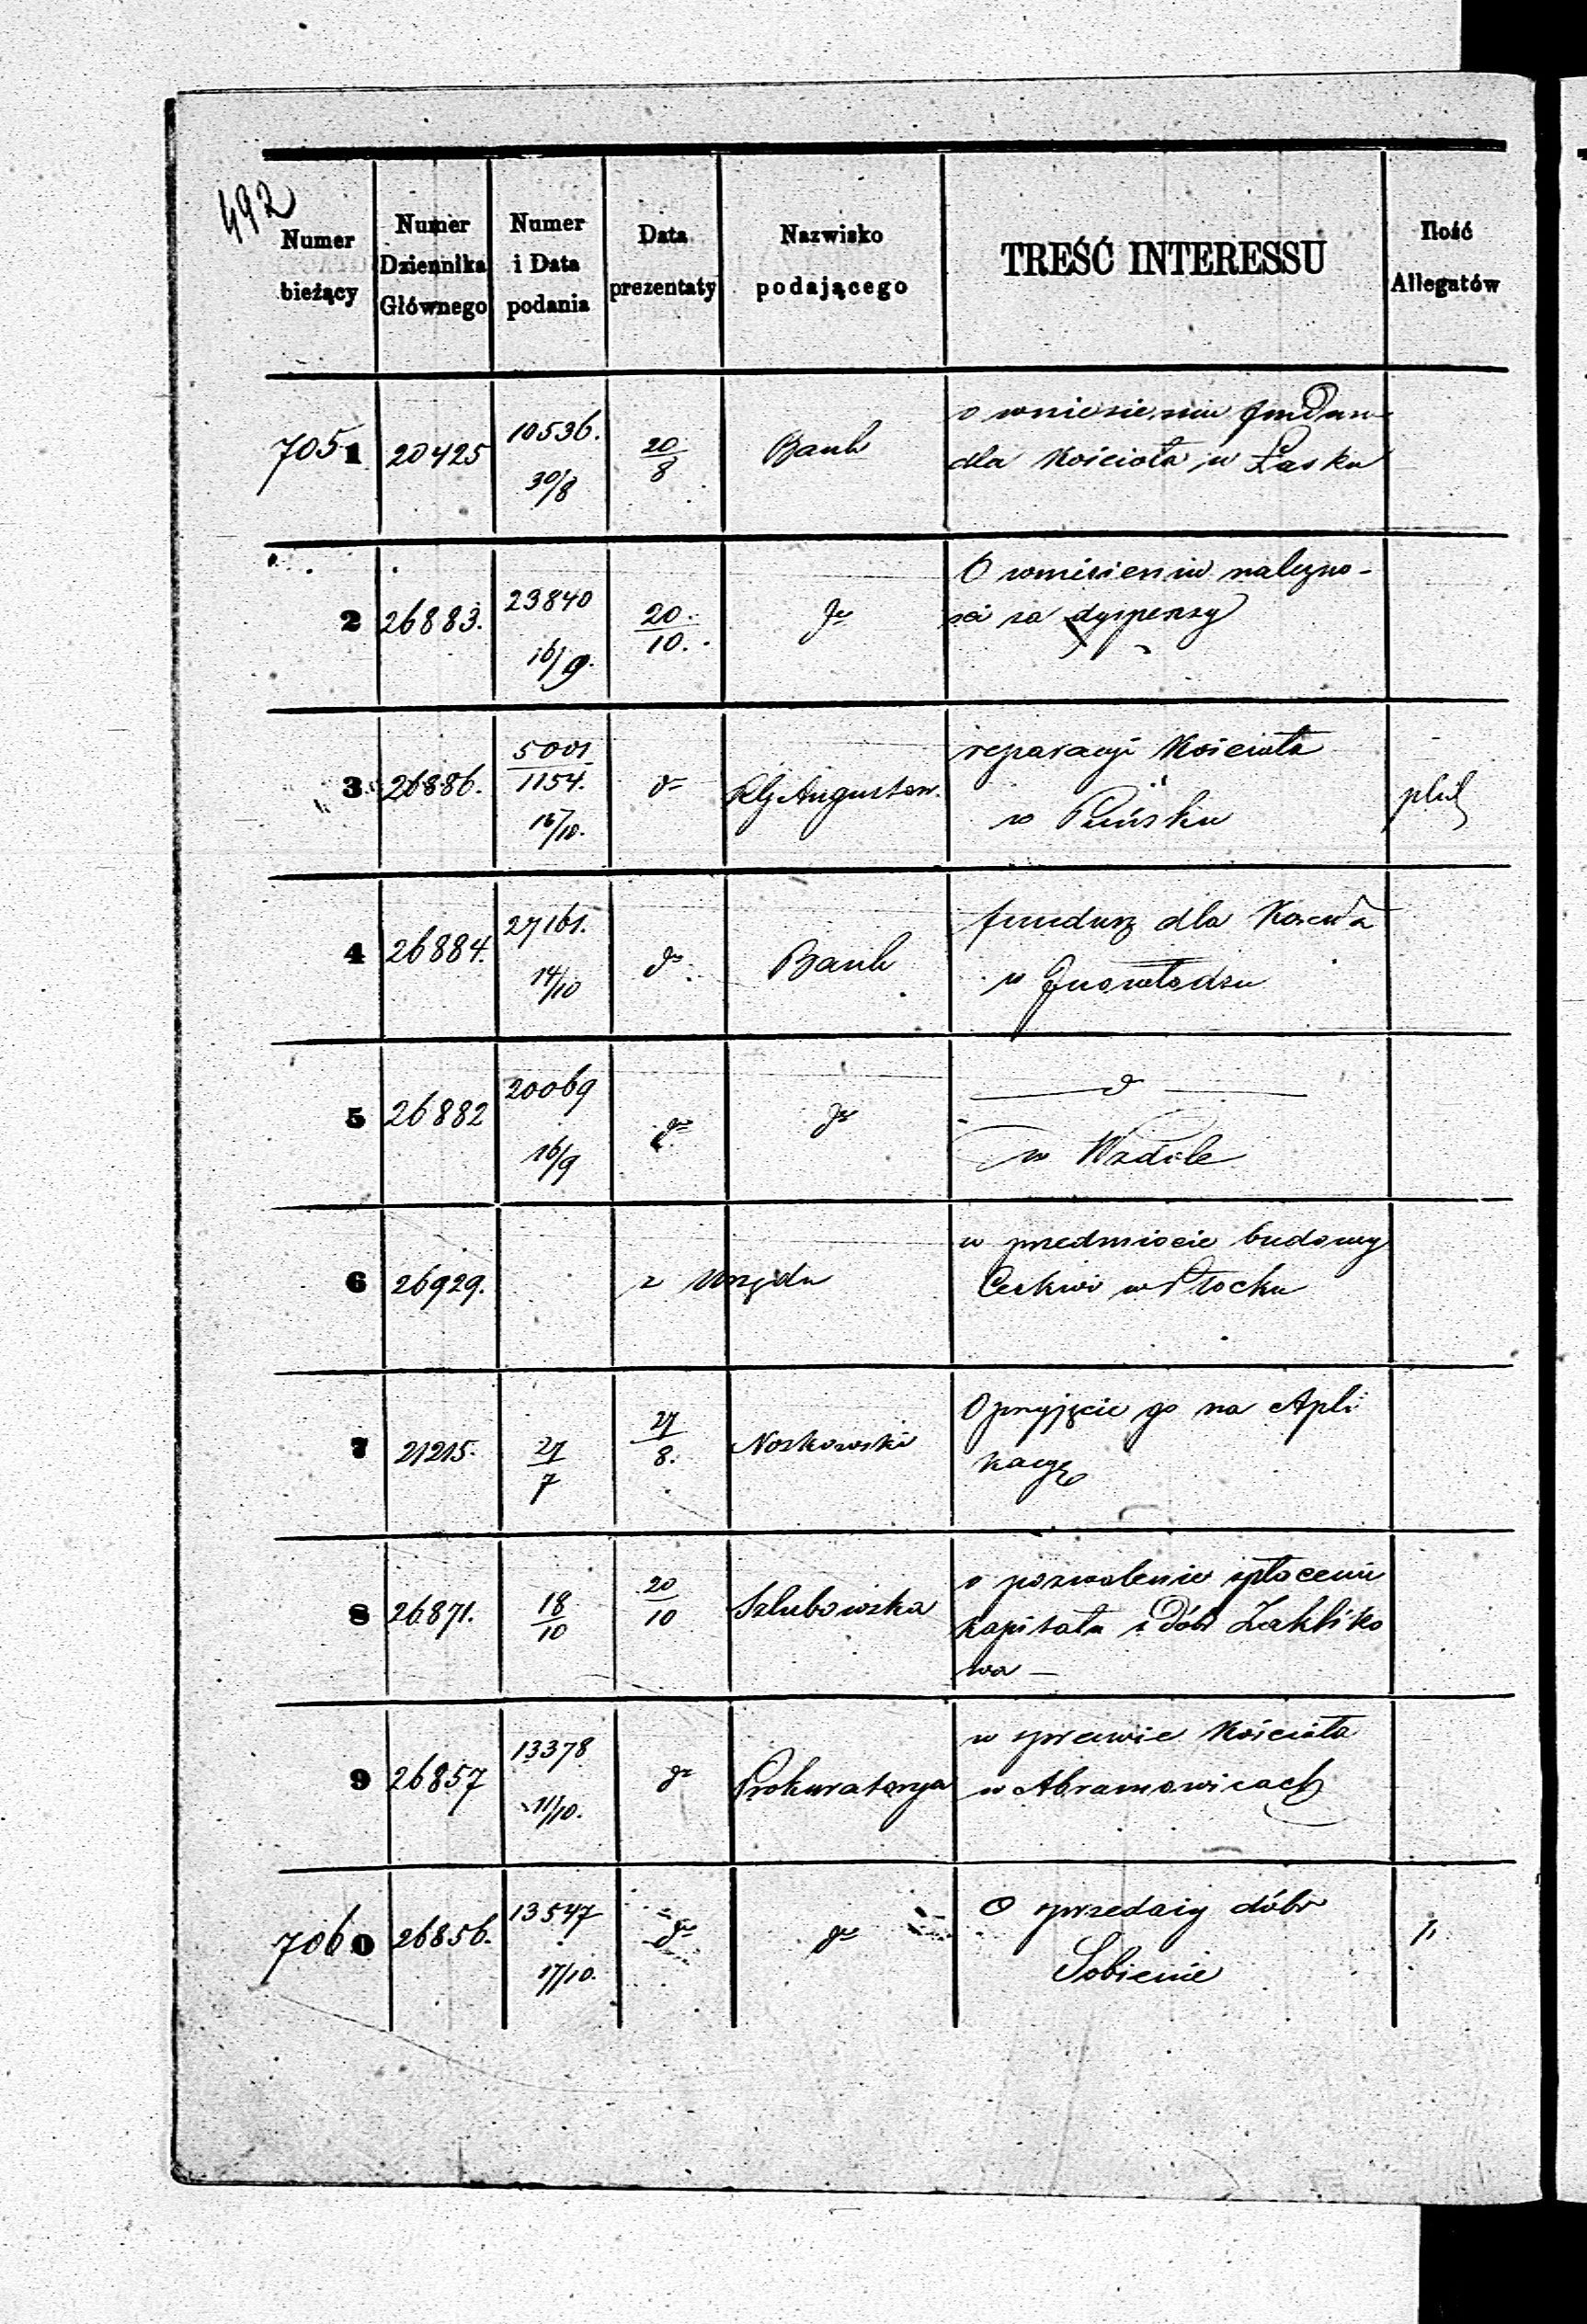 492
Numer bieżący
Numer Dziennika Głównego
Numer i Data podania
Data prezentaty
Nazwisko podającego
TREŚĆ INTERESSU
Ilość Allegatów
7051 20425 10536. 30/8 20/8 Bank
o wniesieniu fundusz
dla Kościoła w Łasku
2 26883. 23840 16/9. 20/10. do
O wniesieniu należno-
ści za dyspensy
3 26886. 5001/1154. 16/10. do Augustow.
reparacyi Kościoła
w Puńsku
plik
4 26884. 27161. 14/10 do Bank
fundusz dla Kościoła
w Inowłodzu
5 26882 20069 16/9 do do
d
w Wzdole
6 26929. z Urzędu
w przedmiocie budowy
Cerkwi w Płocku
7 21215. 27/7 27/8. Noskowski
O przyjęcie go na Apli
kacyę
8 26871. 18/10 20/10 Szlubowska
o pozwolenie spłacenia
kapitału z dóbr Zakliko
wa —
9 26857 13378 11/10. do Prokuratorya
w sprawie Kościoła
w Abramowicach
7060 26856. 13547 17/10. do do
O sprzedaży dóbr
Sobienie
1.